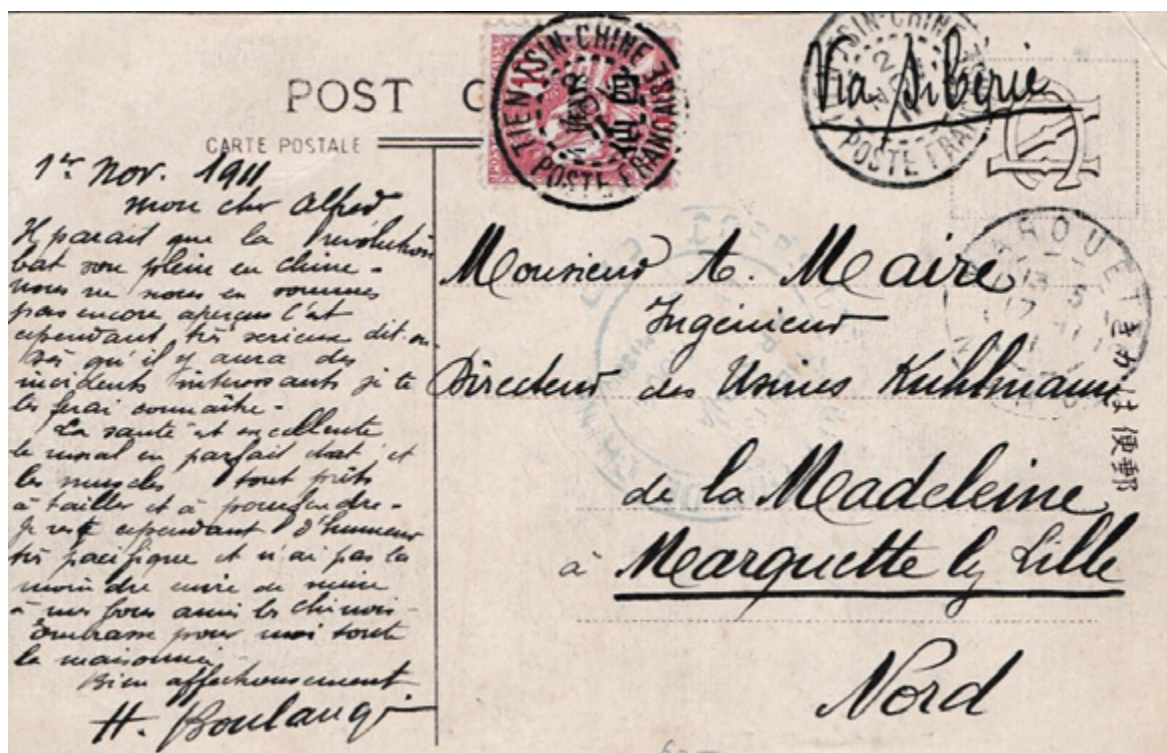 POST
CARTE POSTALE
TIENTSIN-CHINE
POSTE FRANÇAISE
TIENTSIN-CHINE
POSTE FRAN
Via Sibérie
1er Nov. 1911
Mon cher Alfred
Il parait que la révolution
bat son plein en Chine -
nous ne nous en sommes
pas encore aperçus c'est
cependant très sérieux dit-on
Dès qu'il y aura des
incidents intéressants je te
les ferai connaître -
La santé est excellente
le moral en parfait état et
les muscles tout prêts
à tailler et à pourfendre -
Je reste cependant d'humeur
très pacifique et n'ai pas la
moindre envie de nuire
à mes bons amis les chinois -
Embrasse pour moi toute
la maisonnée
Bien affectueusement
H. Boulangé
Monsieur A. Maire
Ingénieur
Directeur des Usines Kuhlmann
de la Madeleine
à Marquette lez Lille
Nord
MARQUET
きかは便郵